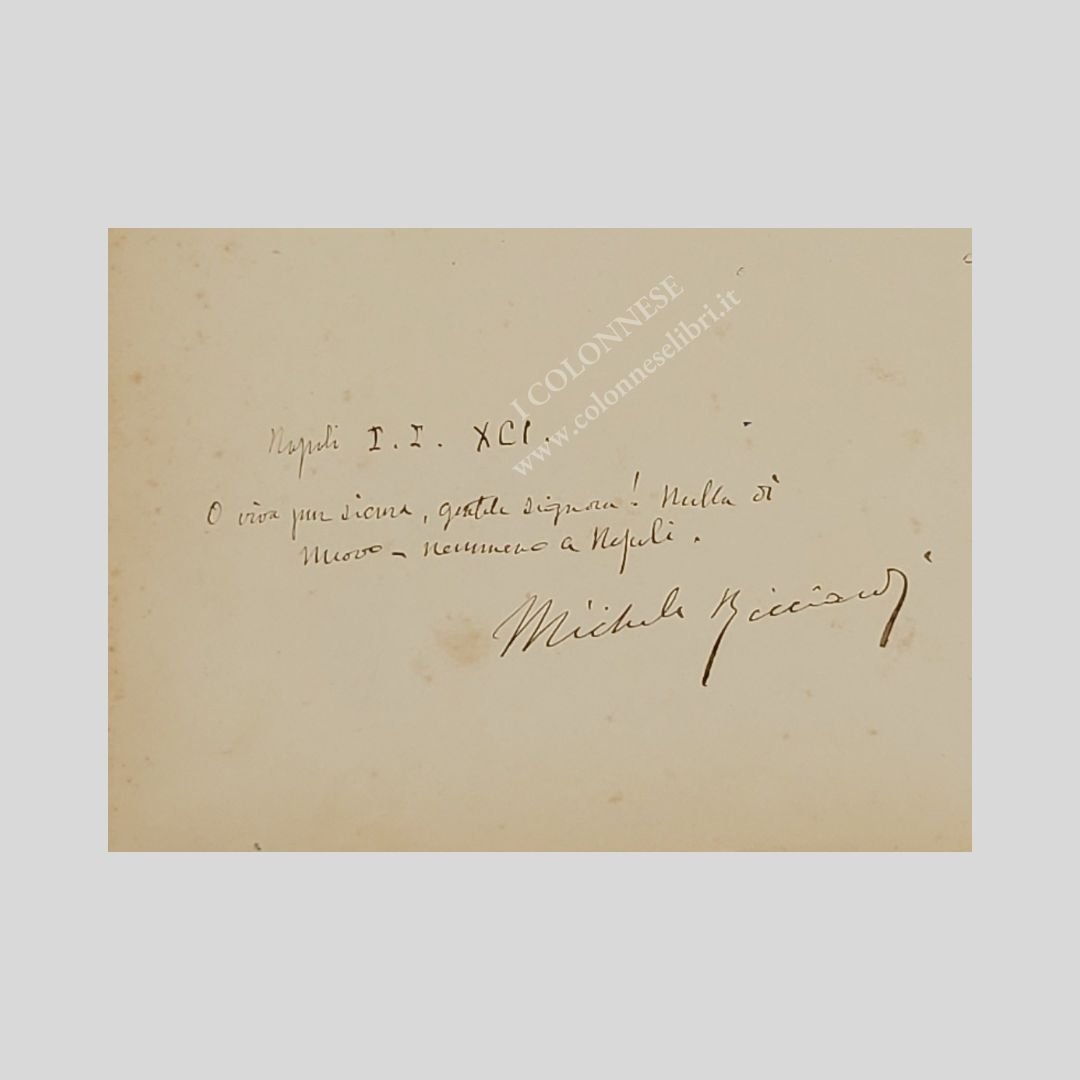 I COLONNESE
www.colonneselibri.it
Napoli I. I. XCI.
O viva pur sicura, gentile signora! Nulla di
nuovo – nemmeno a Napoli.
Michele Ricciardi